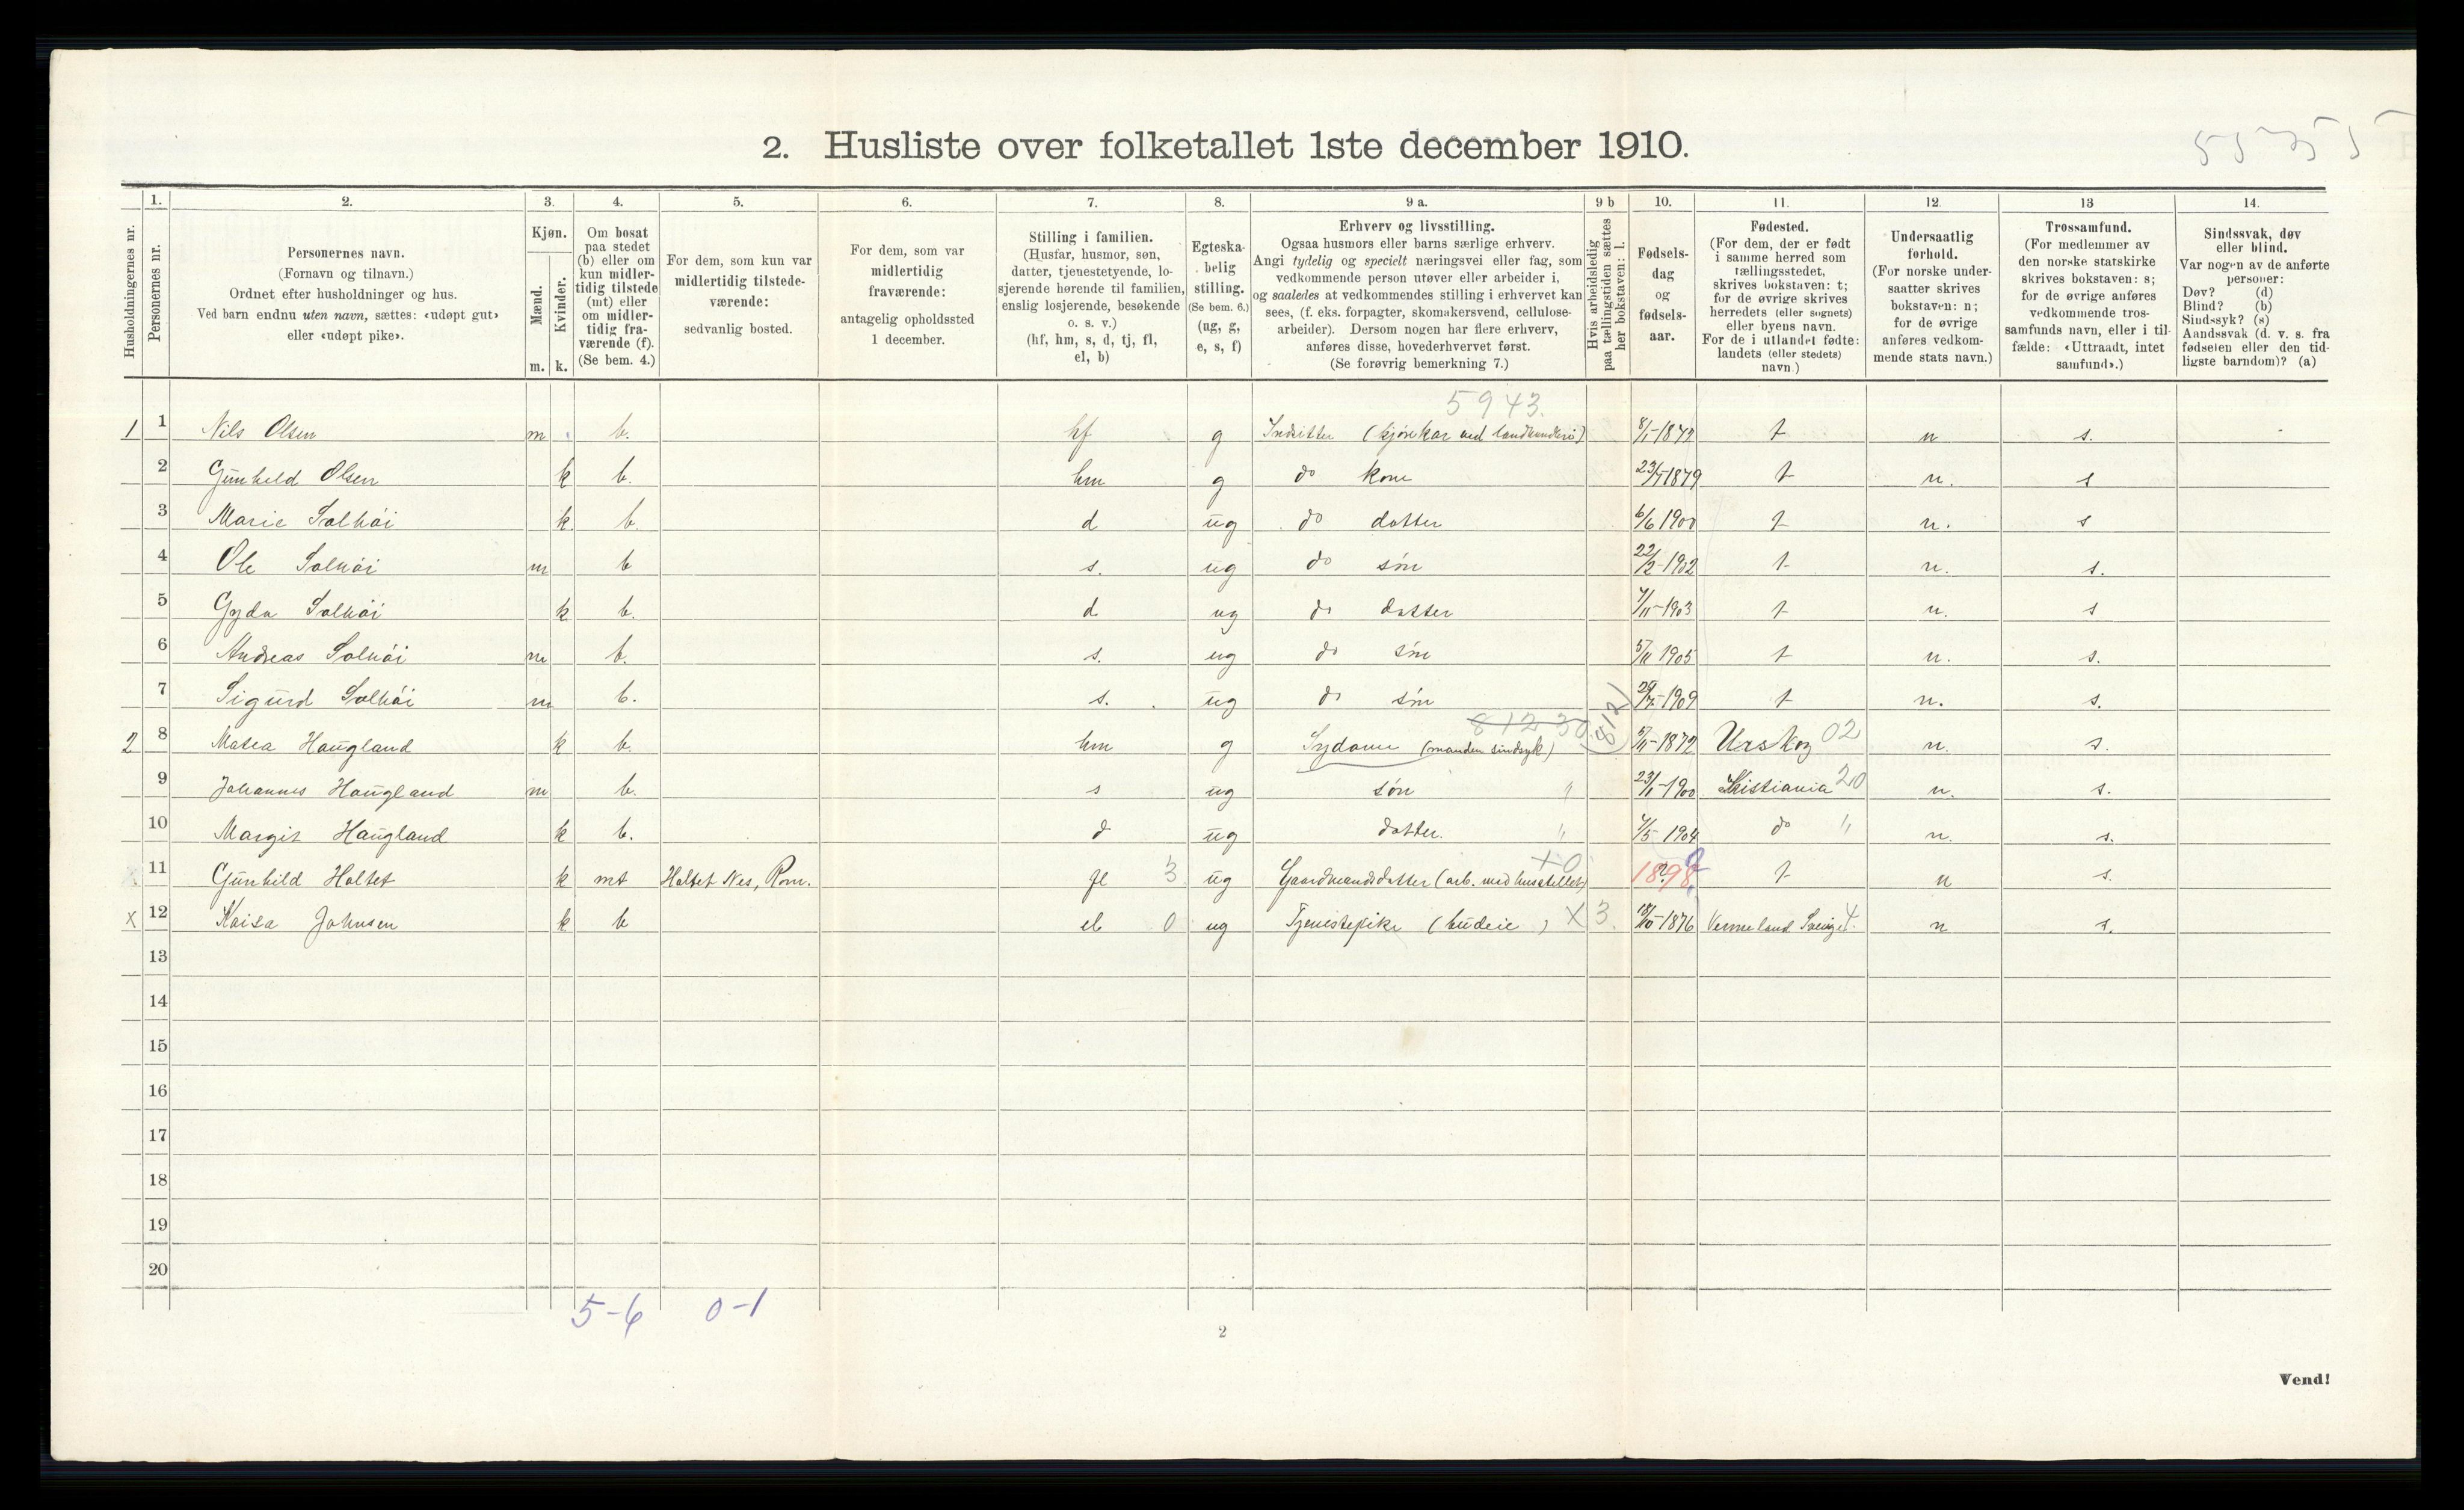 55755
2. Husliste over folketallet 1ste december 1910.
Husholdningernes nr.
1.
Personernes nr.
2.
Personernes navn.
(Fornavn og tilnavn.)
Ordnet efter husholdninger og hus.
Ved barn endnu uten navn, sættes: «udøpt gut»
eller «udøpt pike».
3.
Kjøn.
Mænd.
Kvinder.
m. k.
4.
Om bosat
paa stedet
(b) eller om
kun midler-
tidig tilstede
(mt) eller
om midler-
tidig fra-
værende (f).
(Se bem. 4.)
5.
For dem, som kun var
midlertidig tilstede-
værende:
sedvanlig bosted.
6.
For dem, som var
midlertidig
fraværende:
antagelig opholdssted
1 december.
7.
Stilling i familien.
(Husfar, husmor, søn,
datter, tjenestetyende, lo-
sjerende hørende til familien,
enslig losjerende, besøkende
o. s. v.)
(hf, hm, s, d, tj, fl,
el, b)
8.
Egteska-
belig
stilling.
(Se bem. 6.)
(ug, g,
e, s, f)
9 a.
Erhverv og livsstilling.
Ogsaa husmors eller barns særlige erhverv.
Angi tydelig og specielt næringsvei eller fag, som
vedkommende person utøver eller arbeider i,
og saaledes at vedkommendes stilling i erhvervet kan
sees, (f. eks. forpagter, skomakersvend, cellulose-
arbeider). Dersom nogen har flere erhverv,
anføres disse, hovederhvervet først.
(Se forøvrig bemerkning 7.)
9 b
Hvis arbeidsledig
paa tællingstiden sættes
her bokstaven: l.
10.
Fødsels-
dag
og
fødsels-
aar.
11.
Fødested.
(For dem, der er født
i samme herred som
tællingsstedet,
skrives bokstaven: t;
for de øvrige skrives
herredets (eller sognets)
eller byens navn.
For de i utlandet fødte:
landets (eller stedets)
navn.)
12.
Undersaatlig
forhold.
(For norske under-
saatter skrives
bokstaven: n;
for de øvrige
anføres vedkom-
mende stats navn.)
13
Trossamfund.
(For medlemmer av
den norske statskirke
skrives bokstaven: s;
for de øvrige anføres
vedkommende tros-
samfunds navn, eller i til-
fælde: «Uttraadt, intet
samfund».)
14.
Sindssvak, døv
eller blind.
Var nogen av de anførte
personer:
Døv? (d)
Blind? (b)
Sindssyk? (s)
Aandssvak (d. v. s. fra
fødselen eller den tid-
ligste barndom)? (a)
5943.
1 1 Nils Olsen m b. hf g Indsitter (kjørekar ved landhandleri) 8/1-1872 t n s.
2 Gunhild Olsen k b. hm g do kone 1879 t n. s
3 Marie Solhöi k b. d ug do datter 6/6 1900 t n. s
4 Ole Solhöi m b s. ug do søn 22/2-1902 t n. s.
5 Gyda Solhöi k b. d ug do datter 7/11-1903 t n. s
6 Andreas Solhöi m b. s. ug do søn 5/11 1905 t n. s.
7 Sigurd Solhöi m b. s. ug do søn 1909 t n. s.
812 30 (812)
2 8 Matea Haugland k b. hm g Sydame (manden sindsyk) 5/11-1872 Urskog 02 n. s.
9 Johannes Haugland m b. s ug søn " 23/1-1900 Kristiania 20 n. s.
10 Margit Haugland k b. d ug datter. " 4/5 1904 do " n. s.
11 Gunhild Holtet k mt Holtet Nes, Rom. fl 3 ug Gaardmandsdatter (arb. med husstellet) X0 1898? t n s.
X 12 Kaisa Johnsen k b el 0 ug Tjenestepike (budeie) X 3. 18/10-1876 Vermeland Sverige 4. n s.
13
14
15
16
17
18
19
20
5-6 0-1
2
Vend!